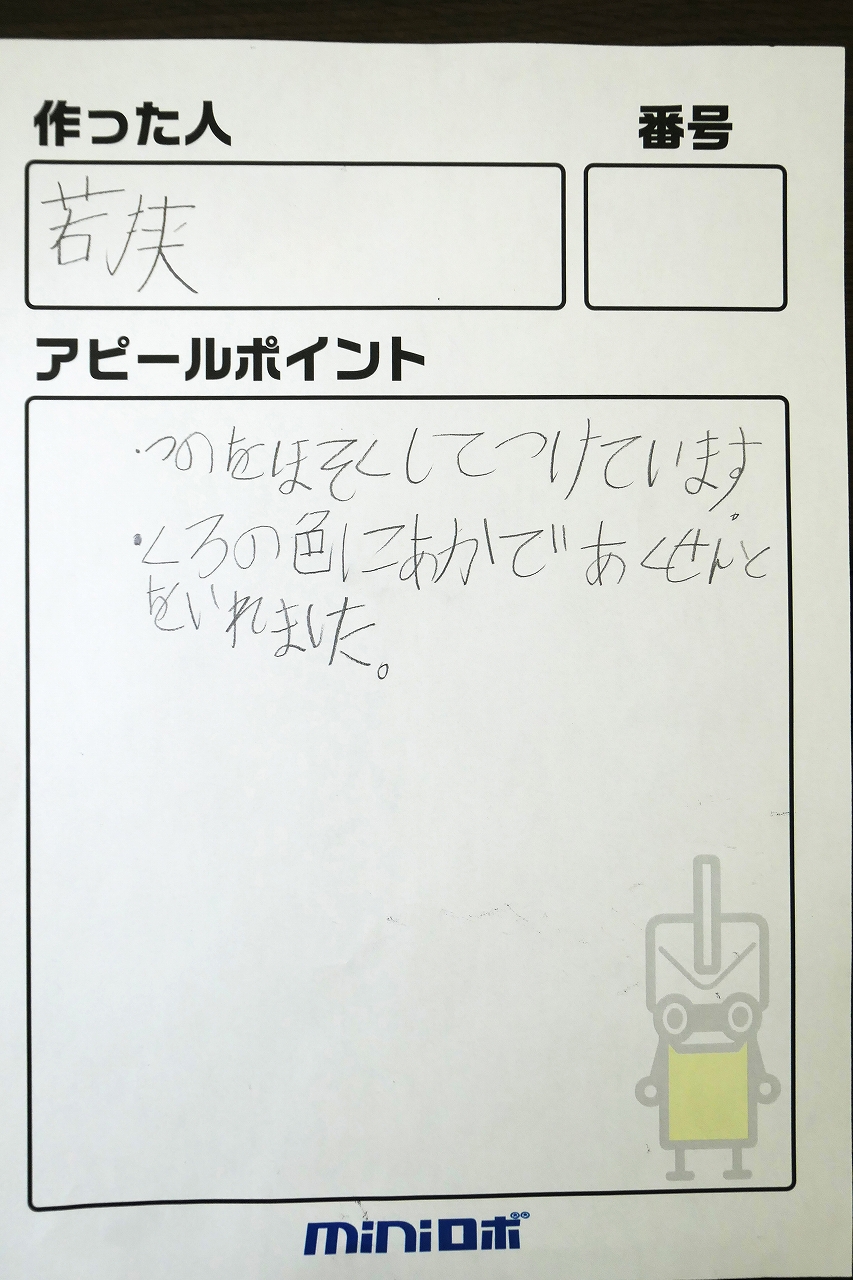 作った人
番号
若狭
アピールポイント
・つのをほそくしてつけています。
・くろの色にあかであくせんと
をいれました。
miniロボ